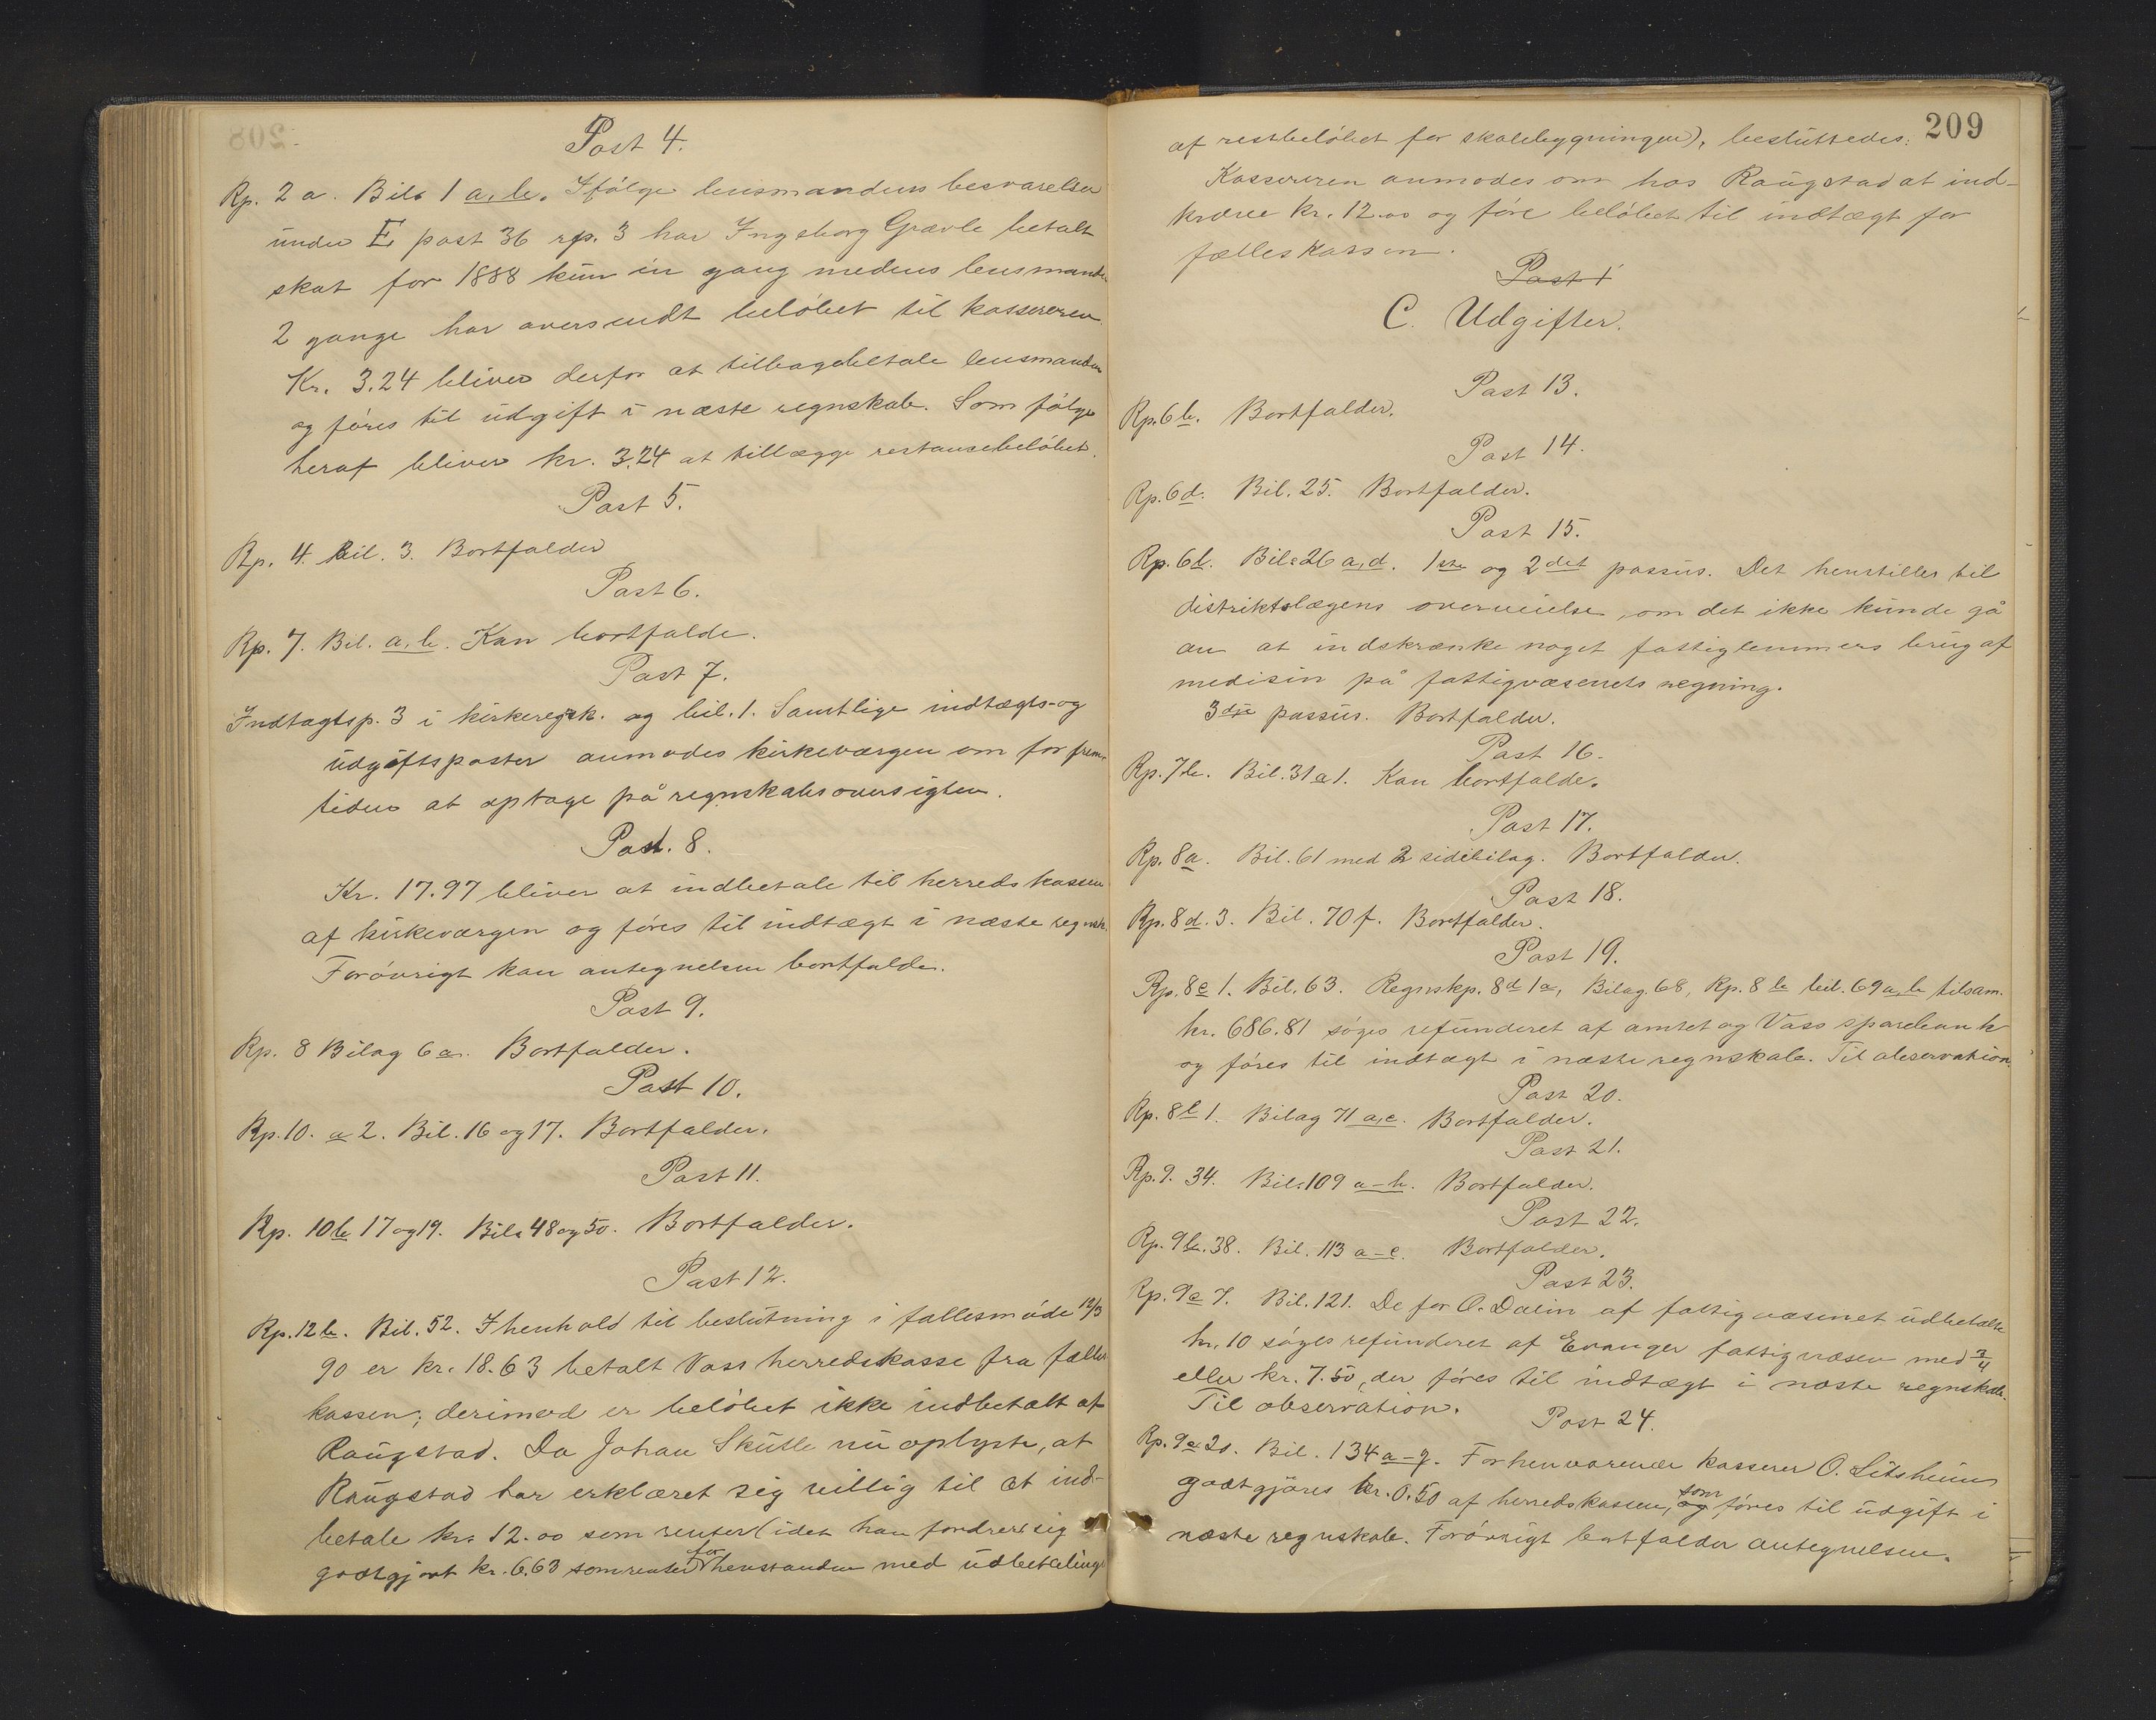 Post 4.
Rp. 2 a. Bil. 1 a, b. Ifølge lensmandens besvarelse
under E, post 36 rp. 3 har Ingeborg Grævle betalt
skat for 1888 kun én gang medens lensmanden
2 gange har oversendt beløbet til kassereren.
Kr. 3.24 bliver derfor at tilbagebetale lensmanden
og føres til udgift i næste regnskab. Som følge
heraf bliver kr. 3.24 at tillægge restansebeløbet.
Post 5.
Rp. 4. Bil. 3. Bortfalder
Post 6.
Rp. 7. Bil. a, b. Kan bortfalde.
Post 7.
Indtægtsp. 3 i kirkeregsk. og bil. 1. Samtlige indtægts- og
udgiftsposter anmodes kirkeværgen om for frem-
tiden at optage på regnskabsoversigten.
Post. 8.
Kr. 17.97 bliver at indbetale til herredskassen
af kirkeværgen og føres til indtægt i næste regnsk.
Forøvrigt kan antegnelsen bortfalde.
Post 9.
Rp. 8 Bilag 6 a. Bortfalder.
Post 10.
Rp. 10. a 2. Bil. 16 og 17. Bortfalder.
Post 11.
Rp. 10 b 17 og 19. Bil. 48 og 50. Bortfalder.
Post 12.
Rp. 12 b. Bil. 52. I henhold til beslutning i fællesmøde 12/3
90 er kr. 18.63 betalt Voss herredskasse fra fælles
kassen; derimod er beløbet ikke indbetalt af
Raugstad. Da Johan Skutle nu oplyste, at
Raugstad har erklæret sig villig til at ind-
betale kr. 12.00 som renter (idet han fordrer sig
godtgjort kr. 6.63 som renter for henstanden med udbetaling
209
af restbeløbet for skolebygningen), besluttedes:
Kassereren anmodes om hos Raugstad at ind-
kræve kr. 12.00 og føre beløbet til indtægt for
fælleskassen.
Post 1
C. Udgifter.
Post 13.
Rp. 6 b. Bortfalder.
Post 14.
Rp. 6 d. Bil. 25. Bortfalder.
Post 15.
Rp. 6 b. Bil. 26 a, d. 1ste og 2det passus. Det henstilles til
distriktslægens overveielse, om det ikke kunde gå
an at indskrænke noget fattiglemmers brug af
medisin på fattigvæsenets regning.
3dje passus. Bortfalder.
Post 16.
Rp. 7 b. Bil. 31 a 1. Kan bortfalde.
Post 17.
Rp. 8 a. Bil. 61 med 2 sidebilag. Bortfalder.
Post 18.
Rp. 8 d. 3. Bil. 70 f. Bortfalder.
Post 19.
Rp. 8 c 1. Bil. 63. Regnskp. 8 d 1 a, Bilag. 68, Rp. 8 b bil. 69 a, b tilsam.
kr. 686.81 søges refunderet af amtet og Voss sparebank
og føres til indtægt i næste regnskab. Til observation.
Post 20.
Rp. 8 l 1. Bilag 71 a, c. Bortfalder.
Post 21.
Rp. 9. 34. Bil. 109 a-h. Bortfalder.
Post 22.
Rp. 9 b. 38. Bil. 113 a-c. Bortfalder.
Post 23.
Rp. 9 c 7. Bil. 121. De for O. Dalin af fattigvæsenet udbetalte
kr. 10 søges refunderet af Evanger fattigvæsen med 3/4
eller kr. 7.50, der føres til indtægt i næste regnskab.
Til observation.
Post 24.
Rp. 9 e 20. Bil. 134 a-g. Forhenværende kasserer O. Litsheim
godtgjøres kr. 0.50 af herredskassen, som føres til udgift i
næste regnskab. Forøvrigt bortfalder antegnelsen.